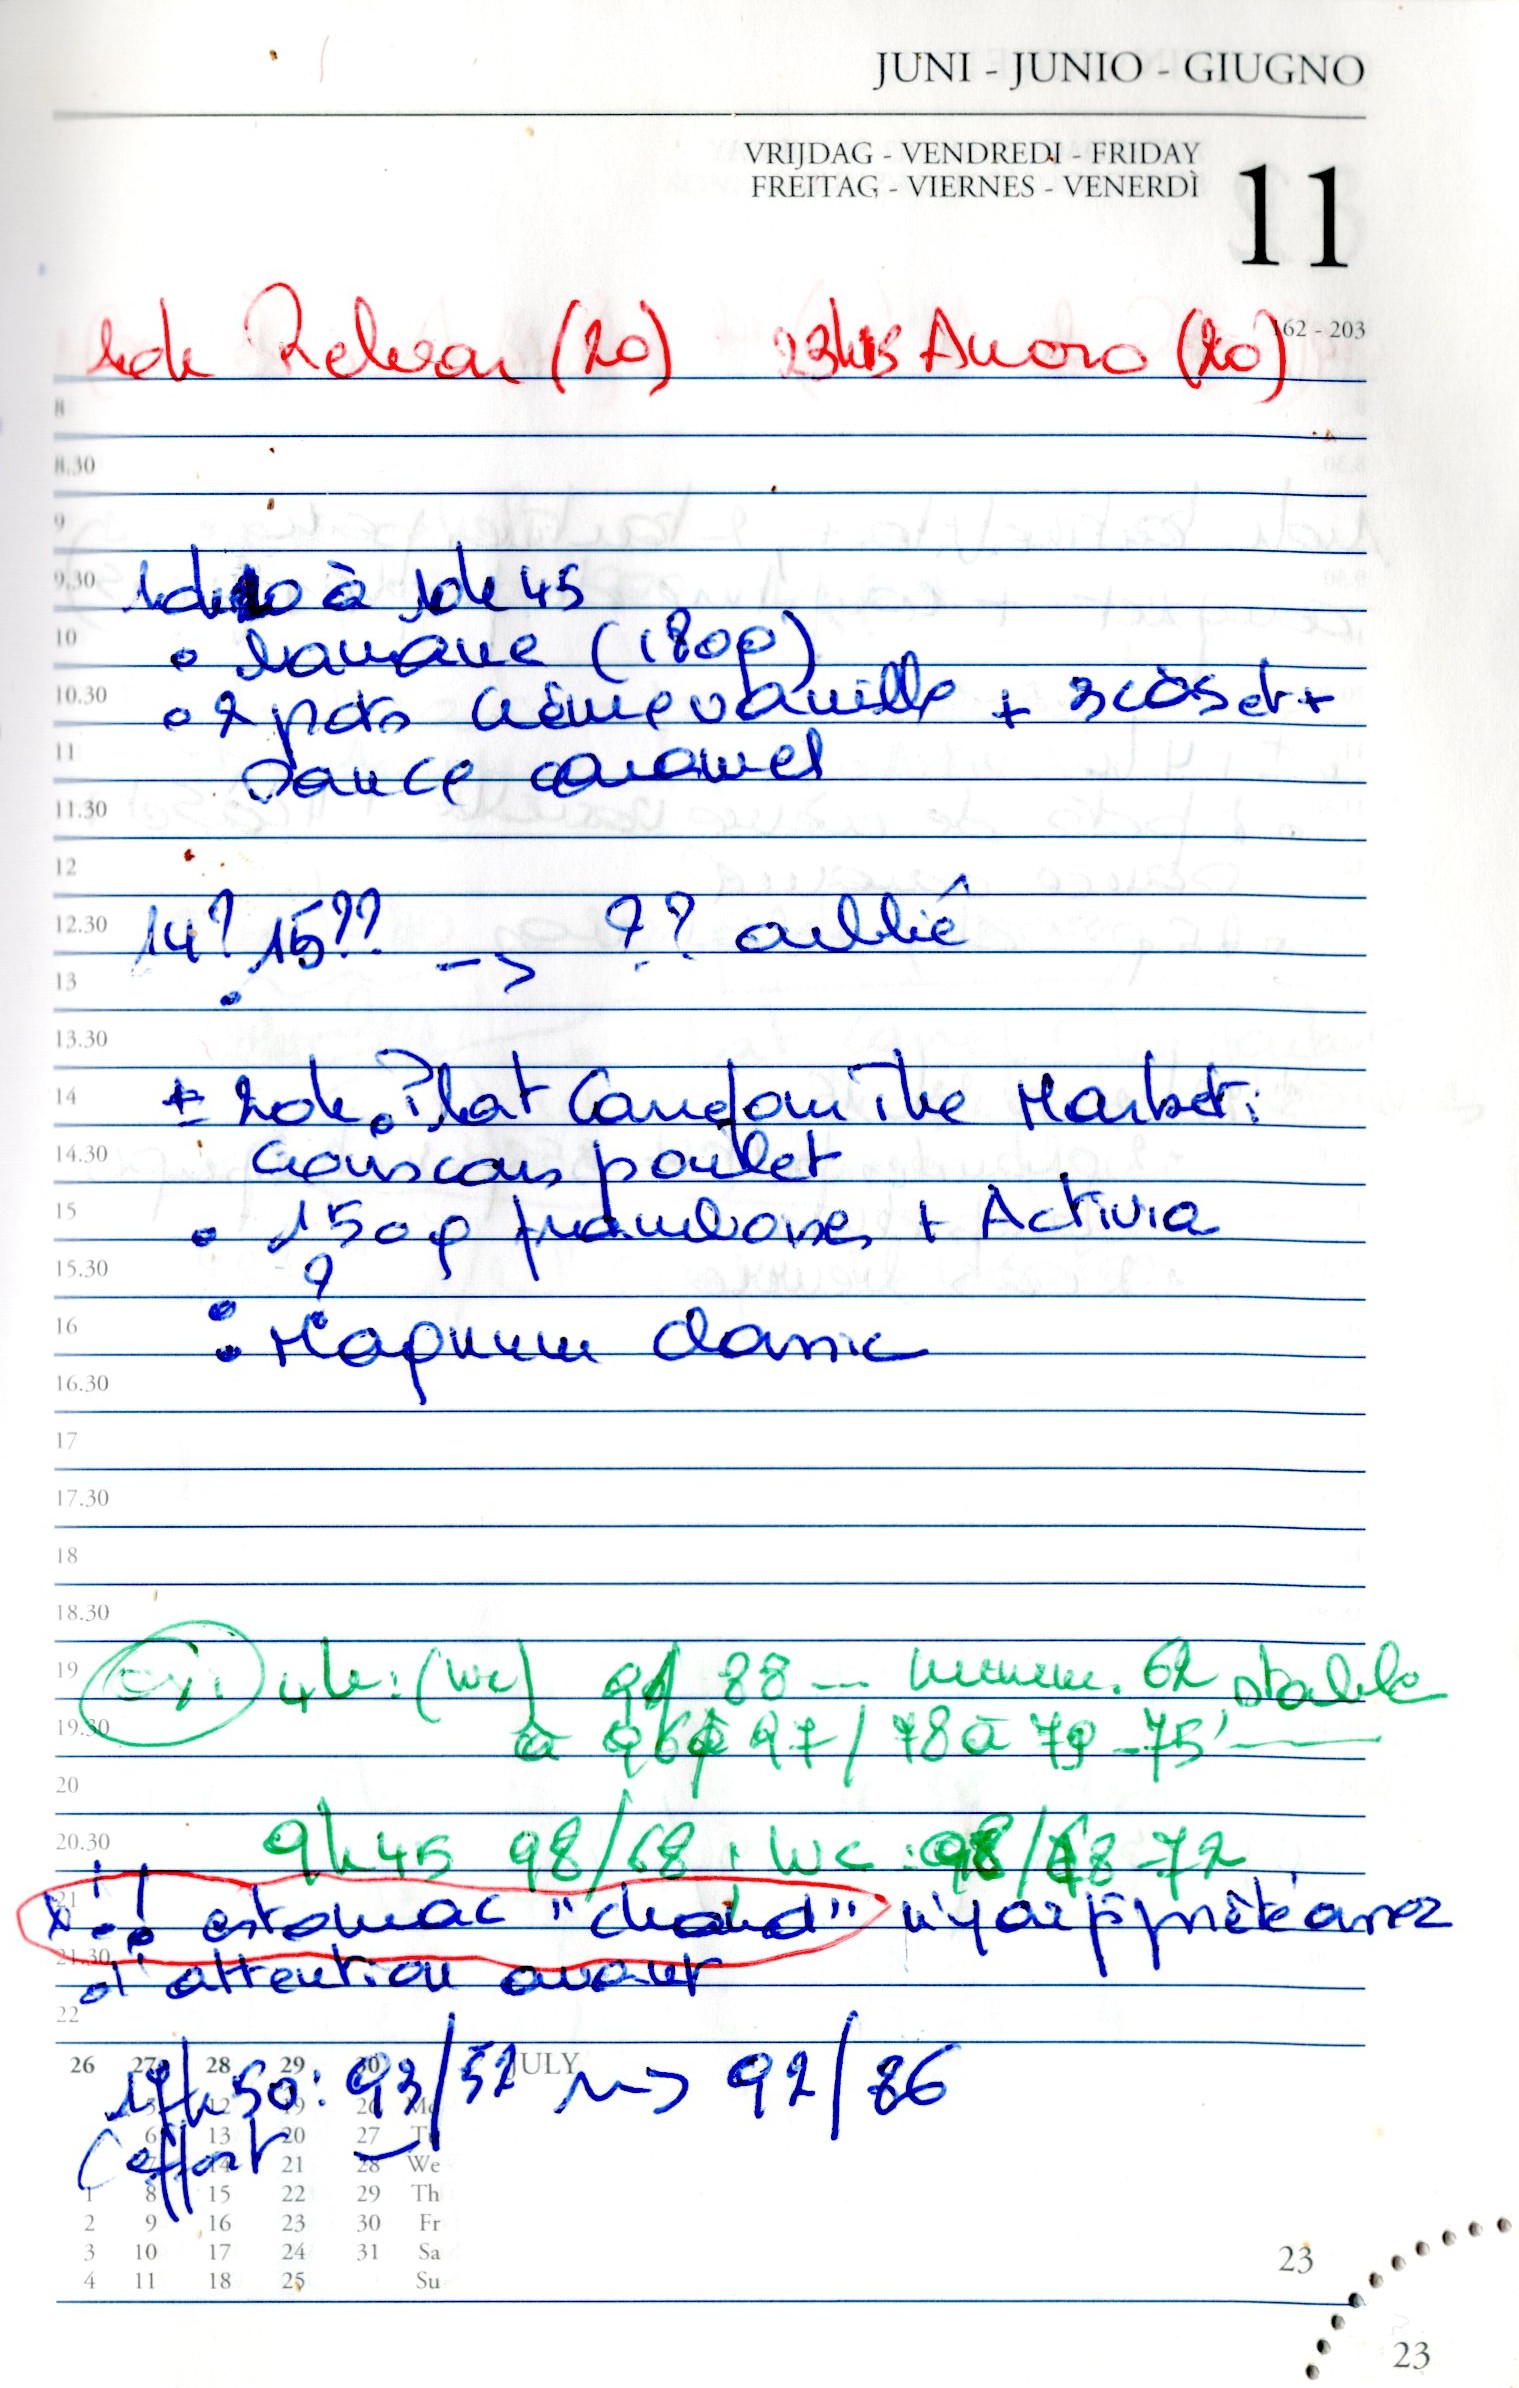 JUNI - JUNIO - GIUGNO
VRIJDAG - VENDREDI - FRIDAY
FREITAG - VIERNES - VENERDÌ
11
162 - 203
10h Relvar (20) 23h15 Anoro (20)
8
8.30
9
9.30
10h10 à 10h45
10
• banane (180g)
10.30
• 2 pots crème vanille + 3 càs et +
11
sauce caramel
11.30
12
12.30
14? 15?? -> ?? oublié
13
13.30
14
± 20h • Plat Carrefour The Market:
14.30
couscous poulet
15
• 150g framboises + Activia
15.30
?
16
• Magnum classic
16.30
17
17.30
18
18.30
19
4h: (wc) 91/88 -- minim. 62, stable
19.30
à 96 à 97/78 à 79 - 75'
20
20.30
9h45 98/68. Wc: 98/68-72
21
!! estomac "chaud" n'y ai p prêté assez
21.30
d'attention avant
22
19h50: 93/52 ~-> 92/86
(effort
26 27 28 29 30 JULY
5 12 19 26 Mo
6 13 20 27 Tu
7 14 21 28 We
1 8 15 22 29 Th
2 9 16 23 30 Fr
3 10 17 24 31 Sa
4 11 18 25 Su
23
23